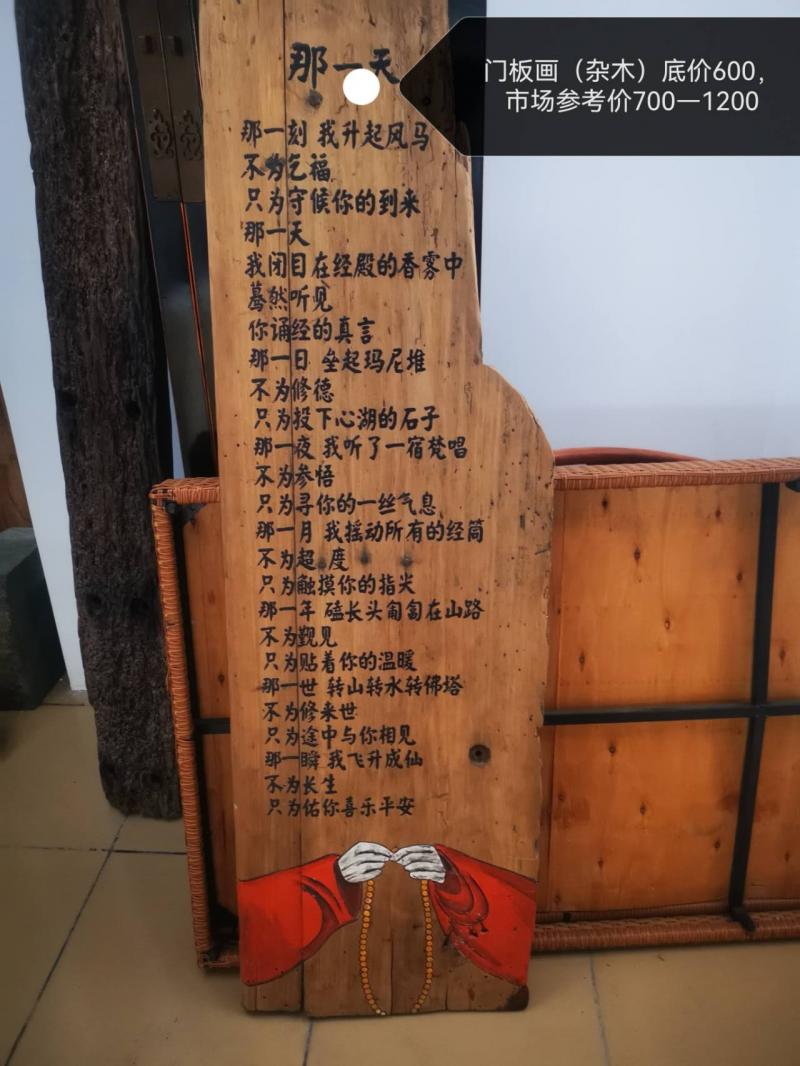 门板画（杂木）底价600，
市场参考价700一1200
那一天
那一刻 我升起风马
不为乞福
只为守候你的到来
那一天
我闭目在经殿的香雾中
蓦然听见
你诵经的真言
那一日 垒起玛尼堆
不为修德
只为投下心湖的石子
那一夜 我听了一宿梵唱
不为参悟
只为寻你的一丝气息
那一月 我摇动所有的经筒
不为超度
只为触摸你的指尖
那一年 磕长头匍匐在山路
不为觐见
只为贴着你的温暖
那一世 转山转水转佛塔
不为修来世
只为途中与你相见
那一瞬 我飞升成仙
不为长生
只为佑你喜乐平安